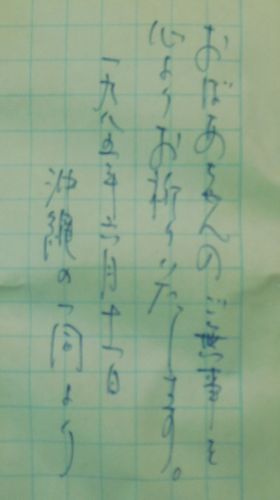 おばあちゃんのご無事を
心よりお祈りいたします。
一九八五年六月十一日
沖縄の一同より